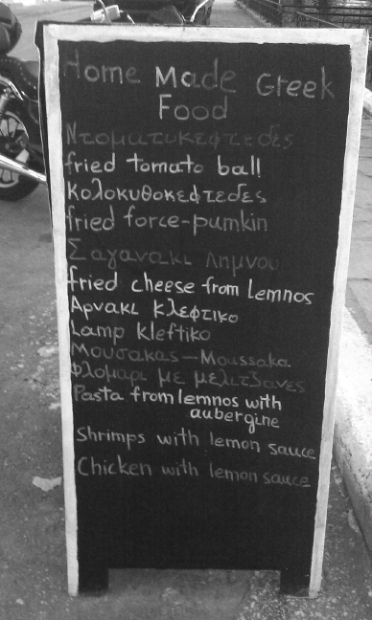 Home Made Greek
Food
Ντοματυκεφτεδες
fried tomato ball
Κολοκυθοκεφτεδες
fried force-pumkin
Σαγανακι Λημνου
fried cheese from Lemnos
Αρνακι κλεφτικο
Lamp kleftiko
Μουσακας-Moussaka
Φλομαρι με μελιτζανες
Pasta from lemnos with
aubergine
Shrimps with lemon sauce
Chicken with lemon sauce